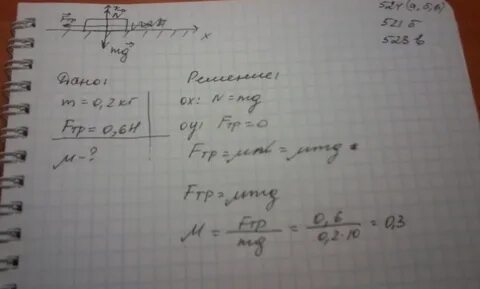 524 (а, б, в)
521 б
523 в
Fтр N
mg x
Дано:
m = 0,2 кг
Fтр = 0,6 Н
μ - ?
Решение:
ox: N = mg
oy: Fтр = 0
Fтр = μN = μmg
Fтр = μmg
μ = Fтр / mg = 0,6 / 0,2·10 = 0,3